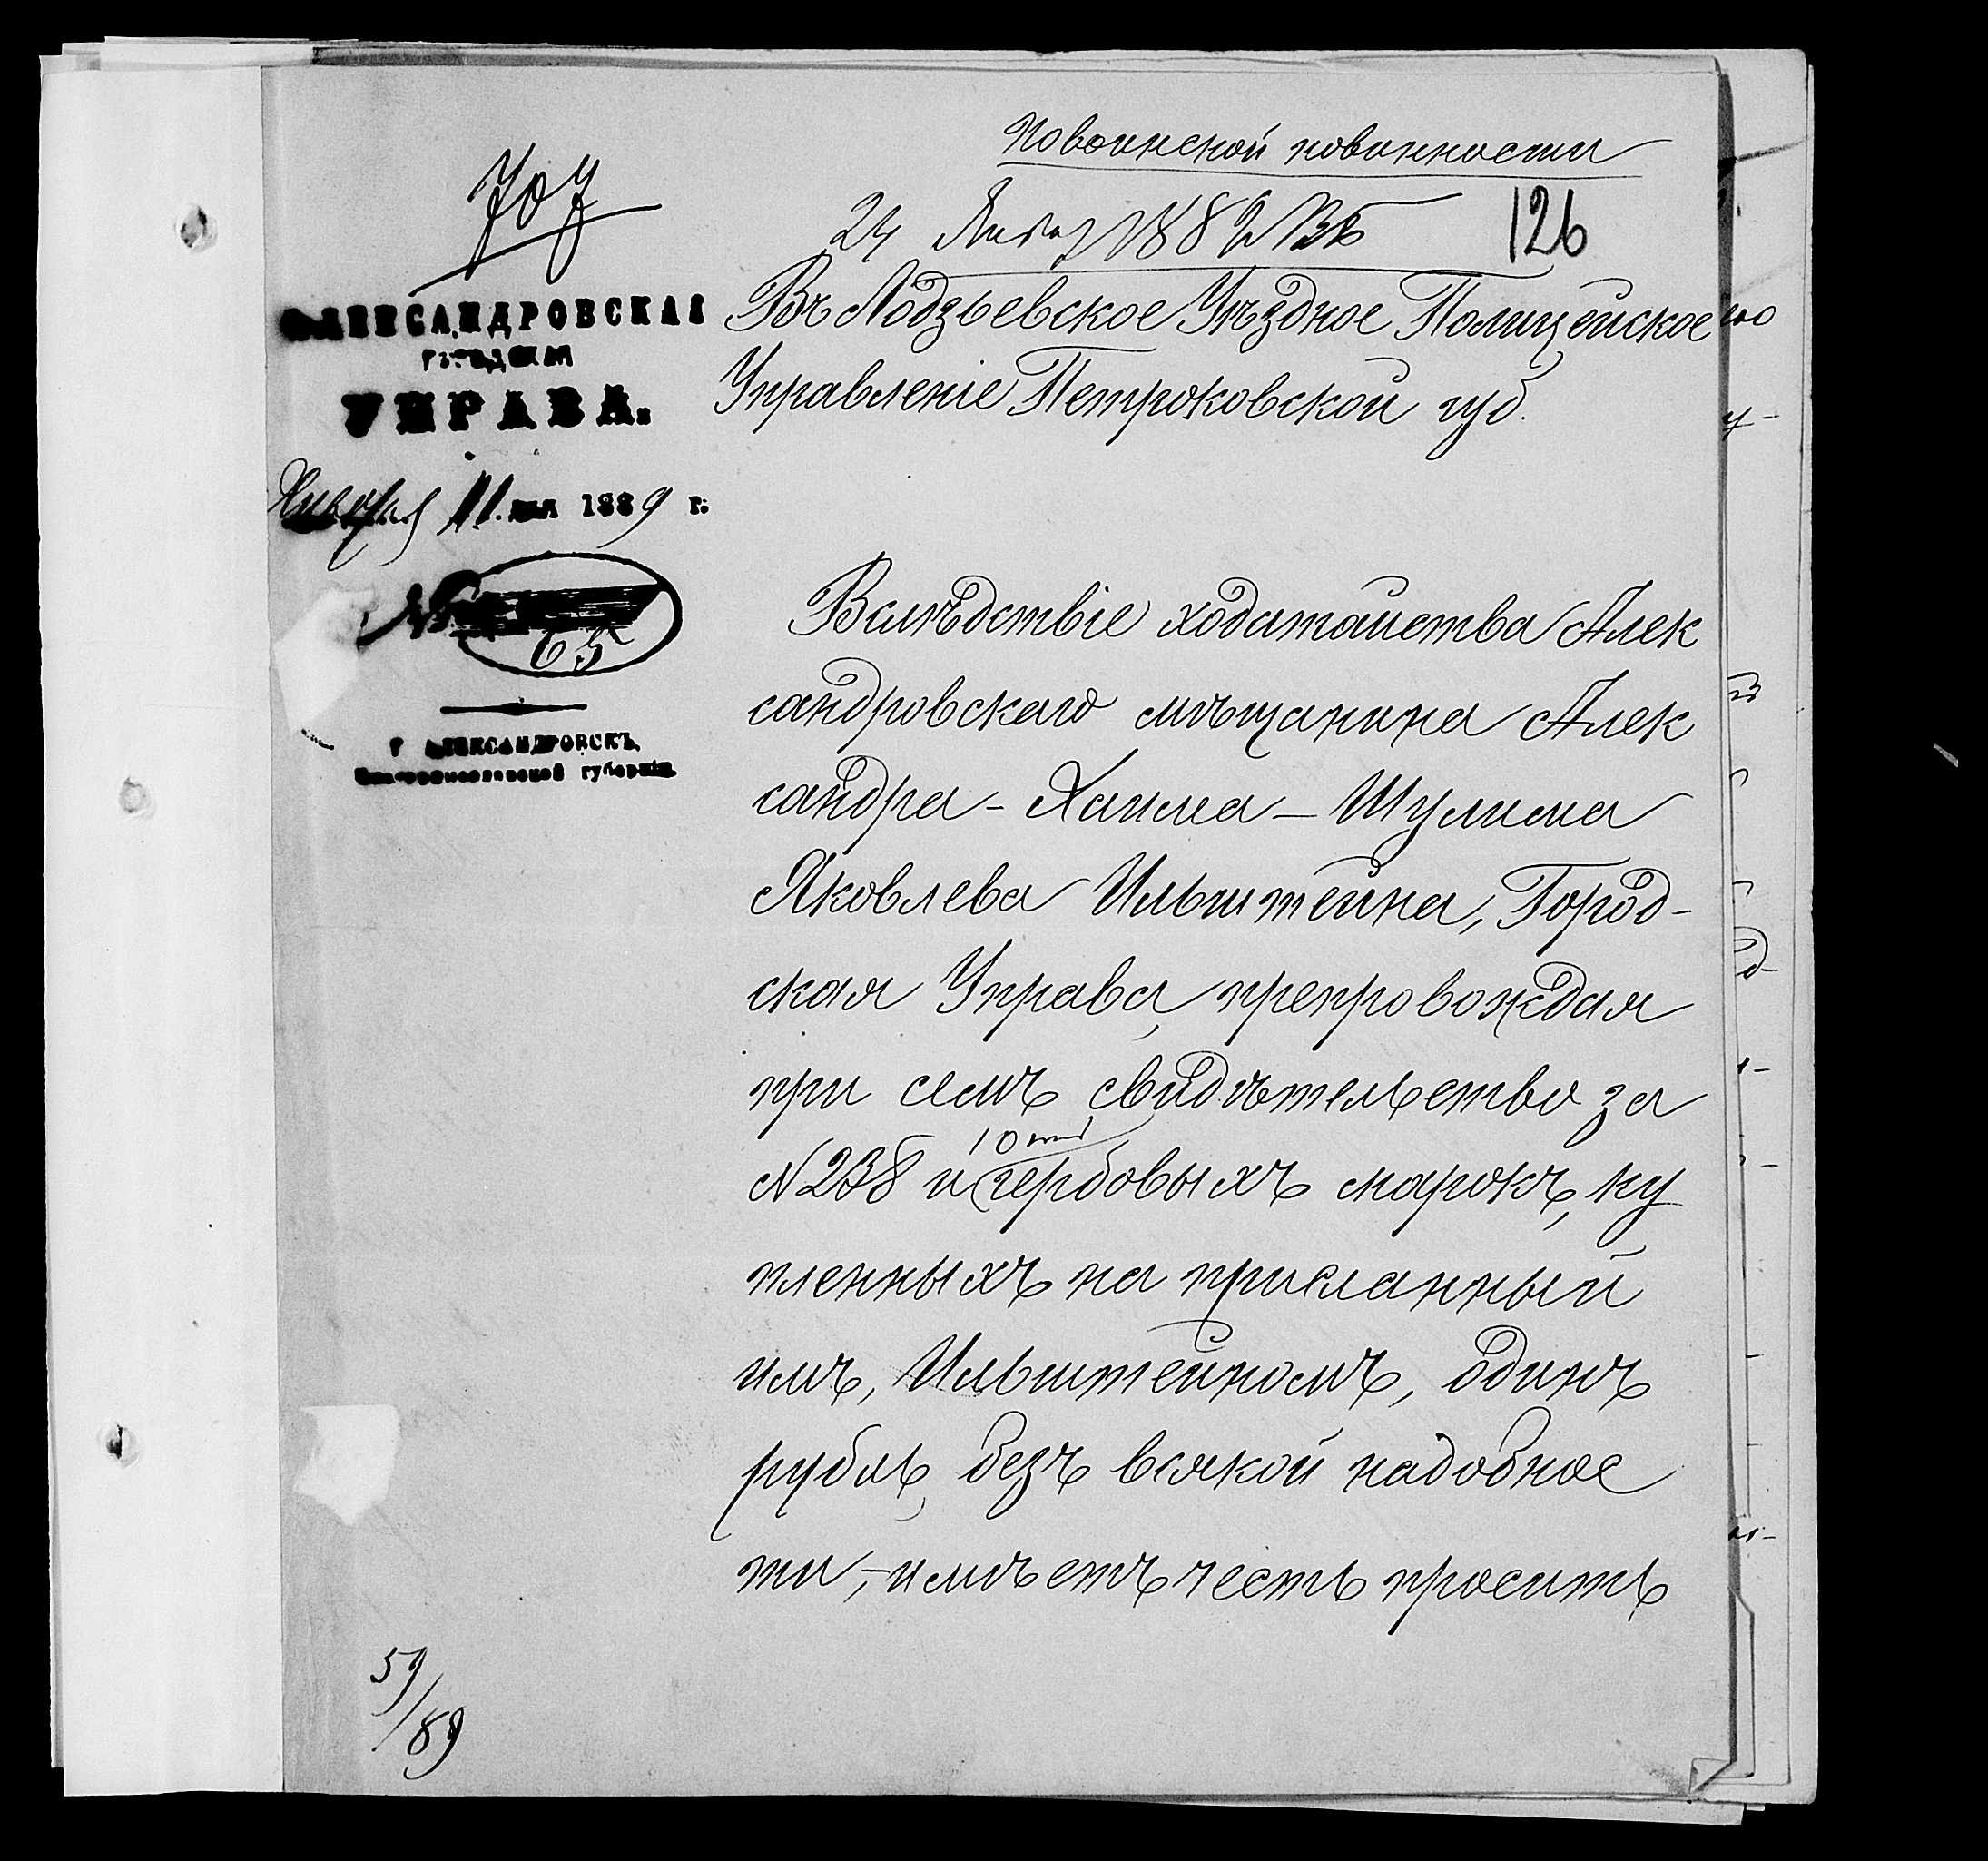 По воинской повинности
707
24 Янв. 1889
126
АЛЕКСАНДРОВСКАЯ
ГОРОДСКАЯ
УПРАВА.
Января 11 дня 1889 г.
№
65
Г. АЛЕКСАНДРОВСКЪ,
Екатеринославской губерніи.
Въ Лодзьевское Уѣздное Полицейское
Управленіе Петроковской губ.
Вслѣдствіе ходатайства Алек
сандровскаго мѣщанина Алек
сандра - Хаима - Шулима
Яковлева Ильштейна, Город-
ская Управа, препровождая
при семъ свидѣтельство за
10
№ 238 и гербовыхъ марокъ, ку
пленныхъ на присланный
имъ, Ильштейномъ, одинъ
рубль, безъ всякой надобнос
ти, - имѣетъ честь просить
59/89